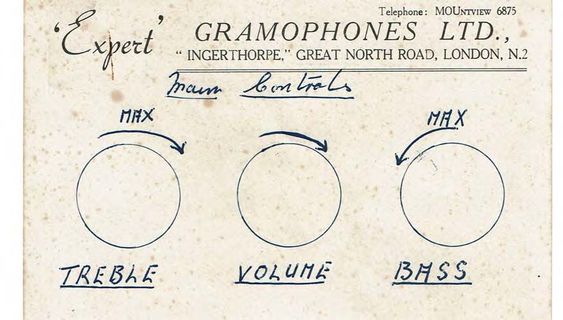 Telephone: MOUntview 6875
'Expert' GRAMOPHONES LTD.,
"INGERTHORPE," GREAT NORTH ROAD, LONDON, N.2
Main Controls
MAX MAX
TREBLE VOLUME BASS